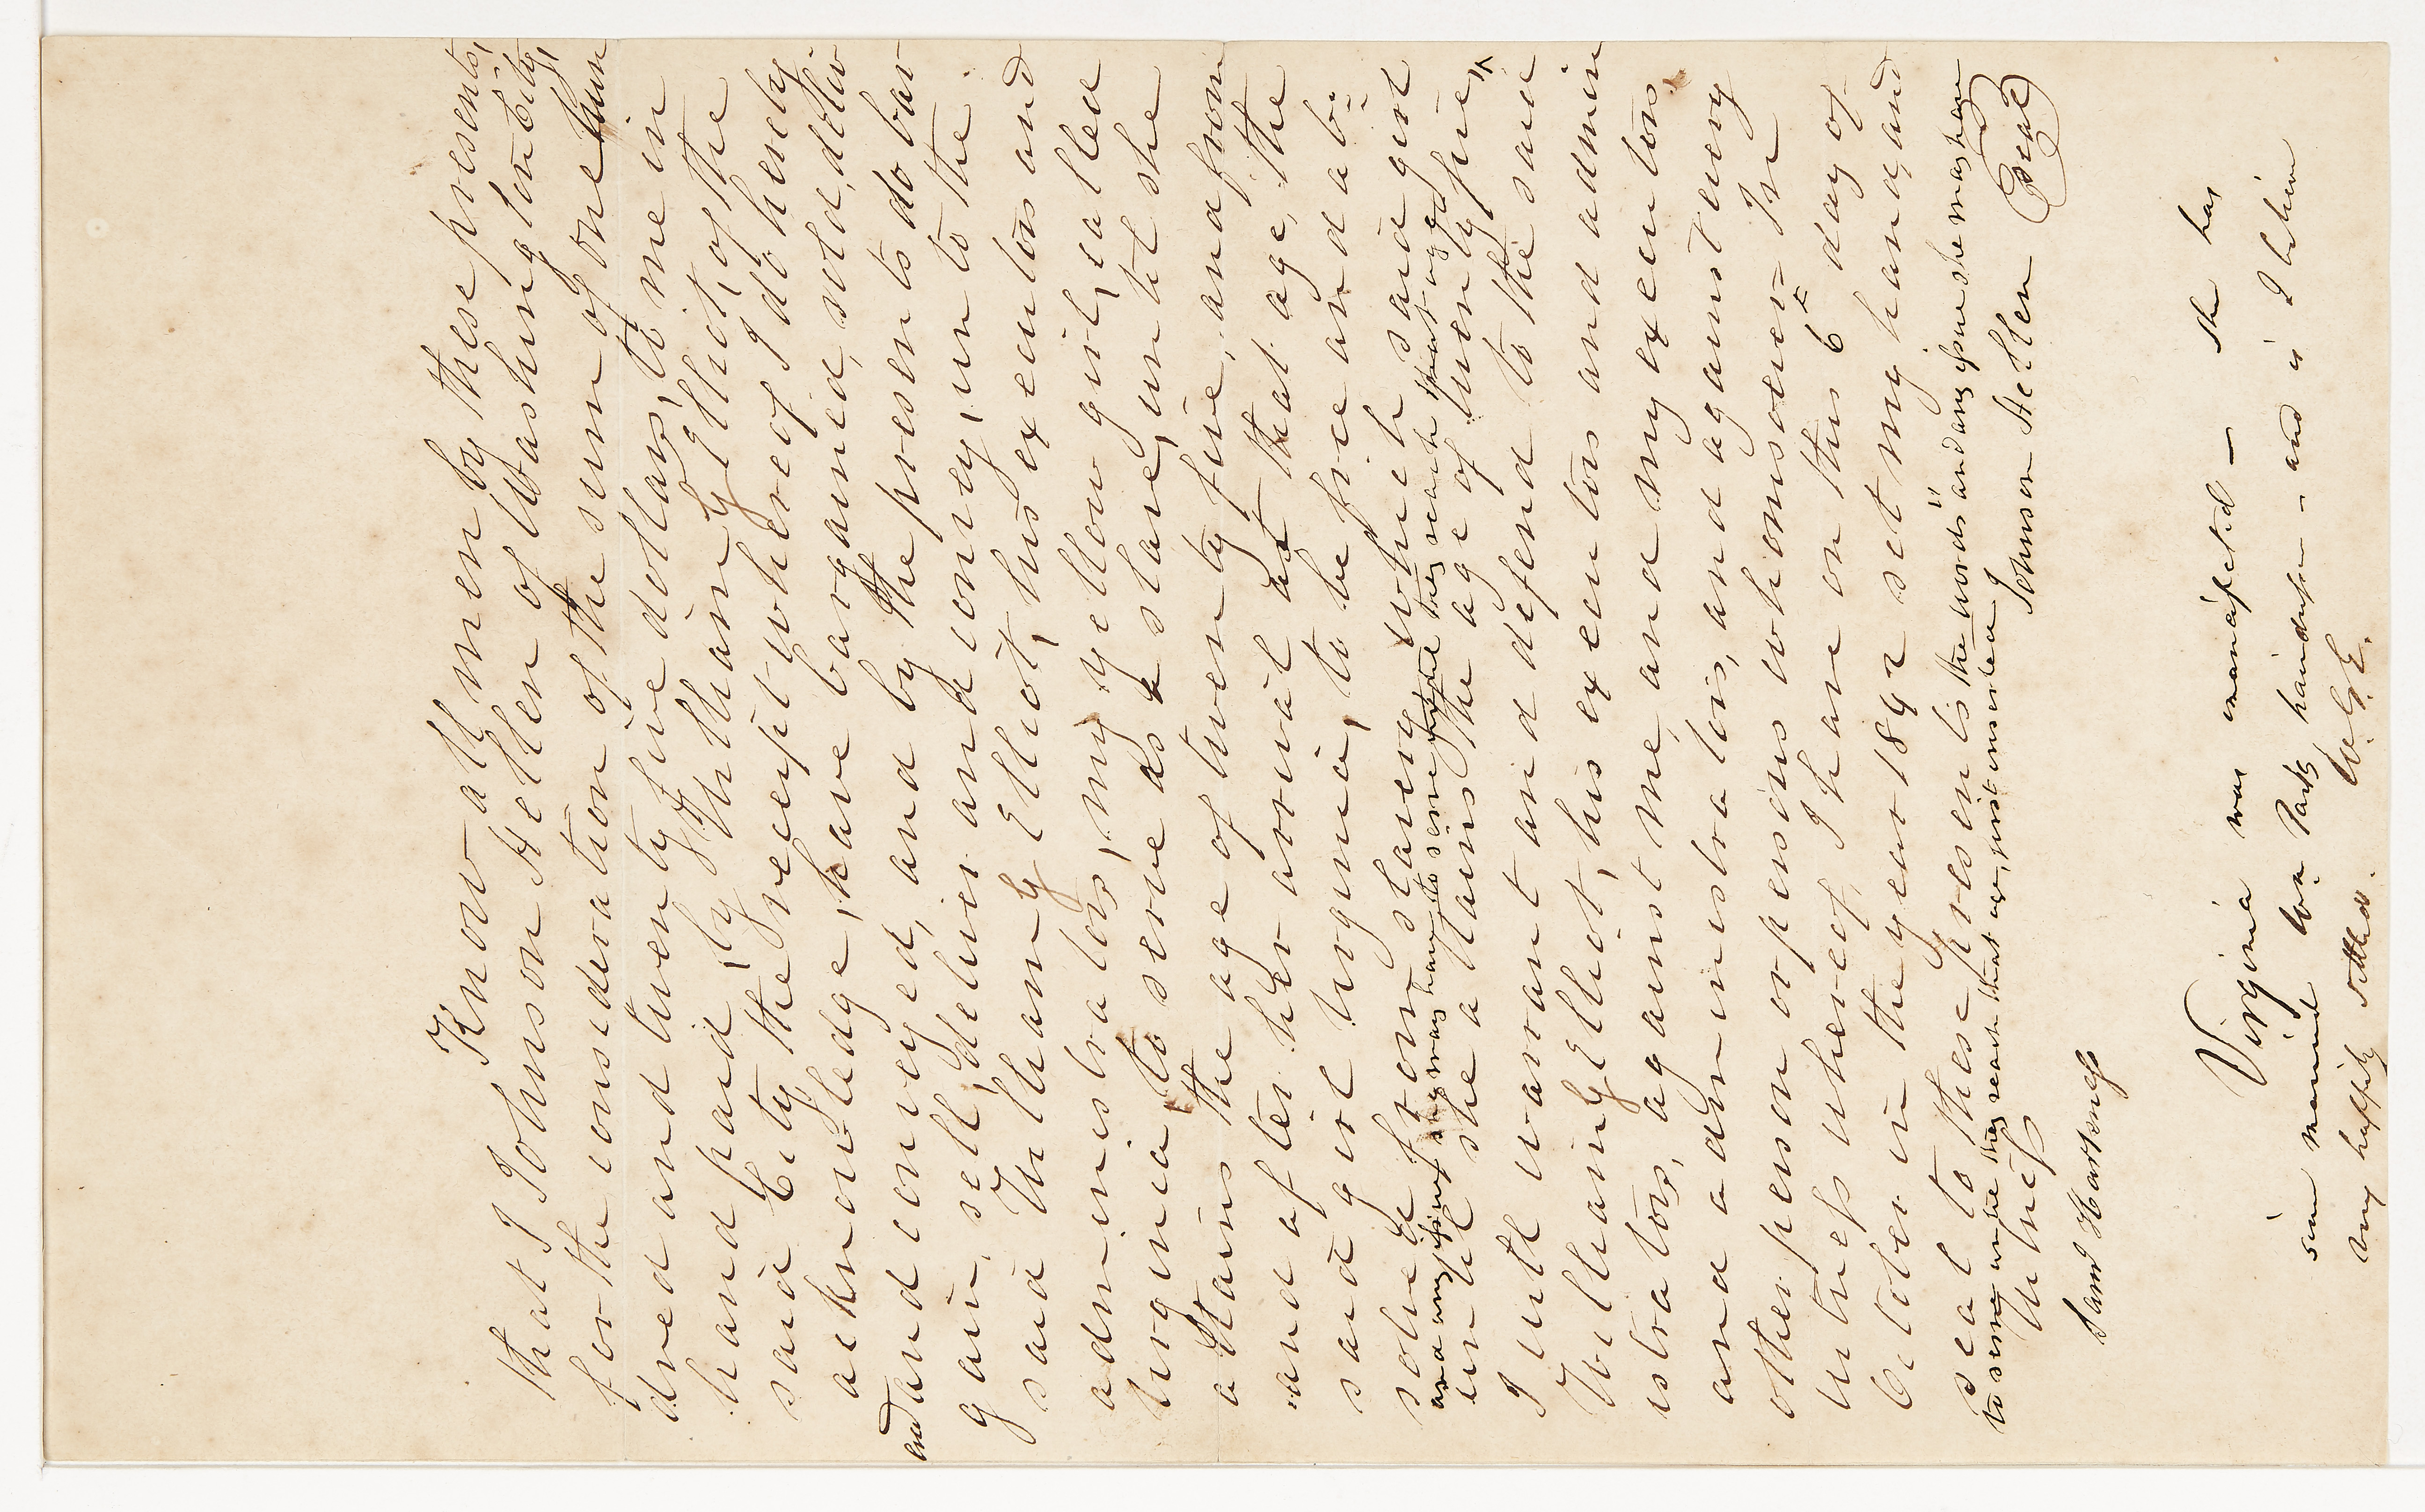 Know all men by these presents,
that I Johnson Hellen of Washington City,
for the consideration of the sum of one hun
dred and twenty five dollars, to me in
hand paid, by William G Elliot, of the
said City the receipt whereof I do hereby
acknowledge, have bargained, sold, deliv
and conveyed, and by the presents do bar
gain, sell, deliver and convey, un to the
said William G Elliot, his executors and
administrators, my yellow girl, called
Virginia, to serve as a slave, until she
attains the age of twenty five, and from
and after her arrival at that age, the
said girl Virginia, to be free and ab=
solved from slavery which said girl
and any issue she may have, to serve until they reach that age
until she attains the age of twenty five,
I will warrant and defend to the said
William G Elliot, his executors and admin
istrators, against me, and my executors,
and administrators, and against every
other person or persons whomsoever= In
witness whereof I have on this 6th day of
October in the year 1842 set my hand and
seal to these presents the words "and any issue she may have
to serve until they reach that age, first inserted
Witness Johnson Hellen Seal
Saml Harkness
Virginia was emancipated — She has
since married Wm. Parks, hairdresser - and is I believe
very happily settled. W.G.E.